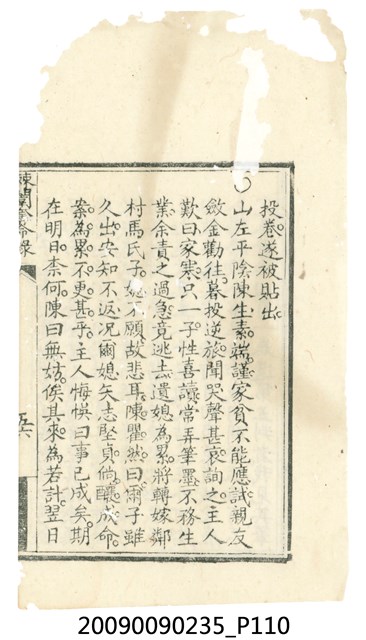 投卷遂被貼出
山左平陰陳生素端謹家貧不能應試親友
斂金勸往暮投逆旅聞哭聲甚哀詢之主人
歎曰家寒只一子性喜讀常弄筆墨不務生
業余責之過急竟逃去遺媳為累將轉嫁鄰
村馬氏子媳不願故悲耳陳瞿然曰爾子雖
久出安知不返況爾媳矢志堅貞倘釀成命
案為累不更甚乎主人悔悞曰事已成矣期
在明日柰何陳曰無妨俟其來為若計翌日
五六
20090090235_P110